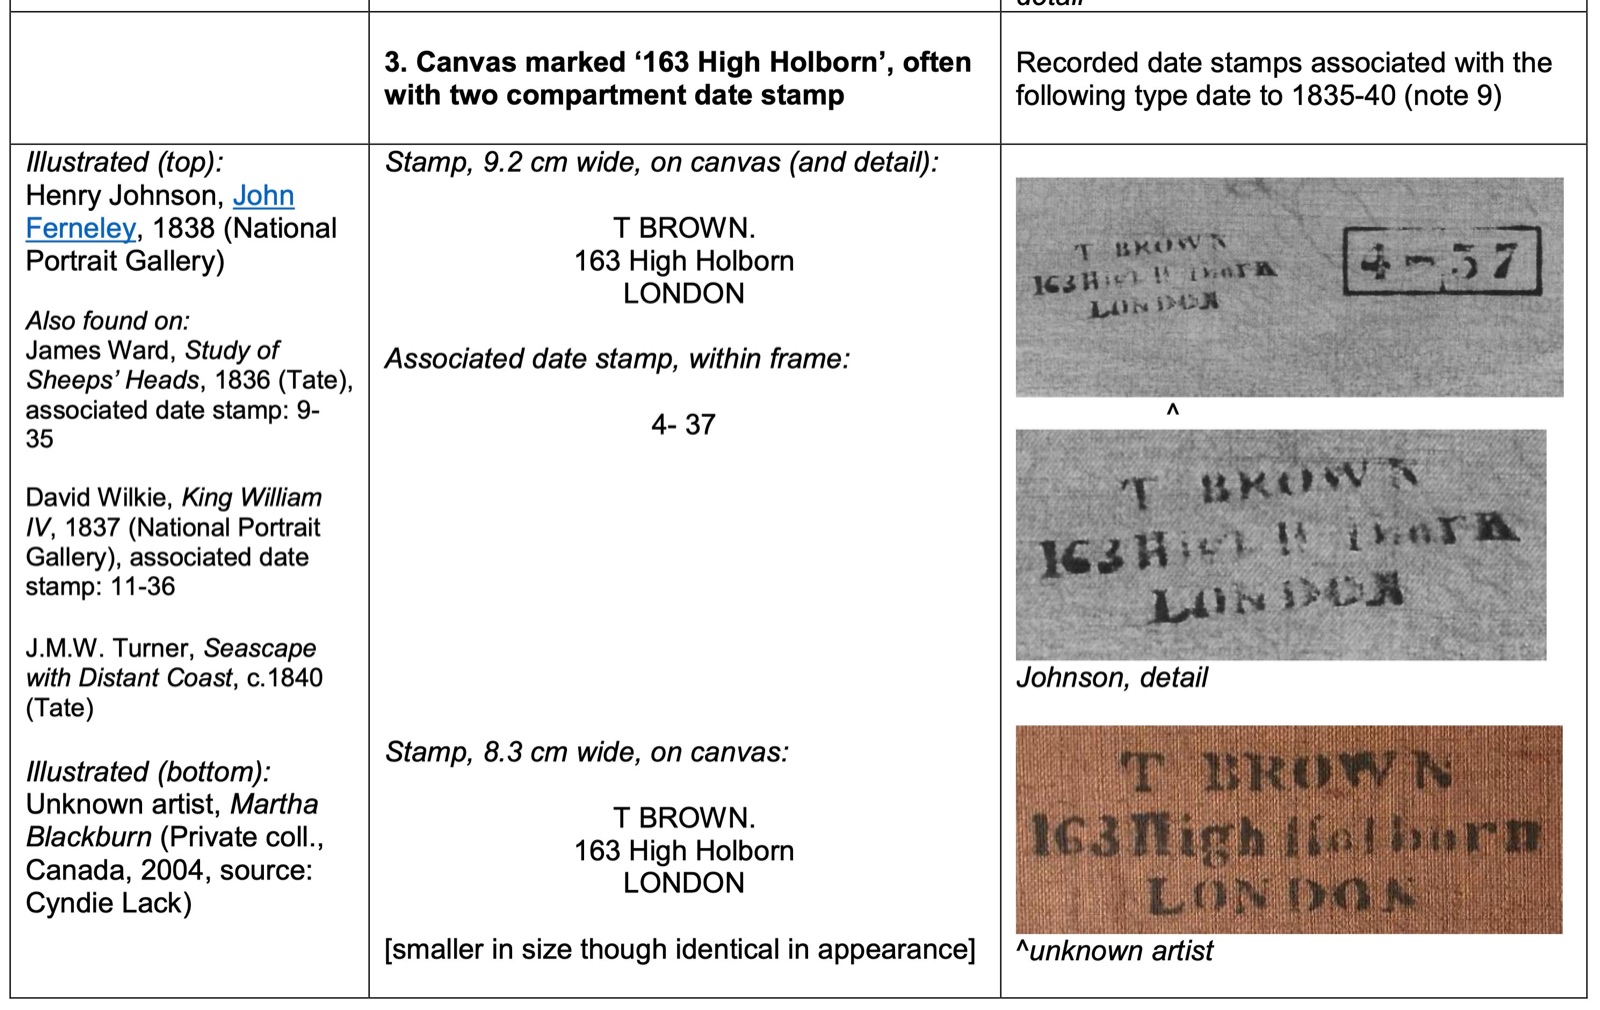 detail
3. Canvas marked ‘163 High Holborn’, often
with two compartment date stamp
Recorded date stamps associated with the
following type date to 1835-40 (note 9)
Illustrated (top):
Henry Johnson, John
Ferneley, 1838 (National
Portrait Gallery)
Also found on:
James Ward, Study of
Sheeps’ Heads, 1836 (Tate),
associated date stamp: 9-
35
David Wilkie, King William
IV, 1837 (National Portrait
Gallery), associated date
stamp: 11-36
J.M.W. Turner, Seascape
with Distant Coast, c.1840
(Tate)
Illustrated (bottom):
Unknown artist, Martha
Blackburn (Private coll.,
Canada, 2004, source:
Cyndie Lack)
Stamp, 9.2 cm wide, on canvas (and detail):
T BROWN.
163 High Holborn
LONDON
Associated date stamp, within frame:
4- 37
Stamp, 8.3 cm wide, on canvas:
T BROWN.
163 High Holborn
LONDON
[smaller in size though identical in appearance]
T BROWN
163 High Holborn
LONDON
4-37
^
T BROWN
163 High Holborn
LONDON
Johnson, detail
T BROWN
163 High Holborn
LONDON
^unknown artist